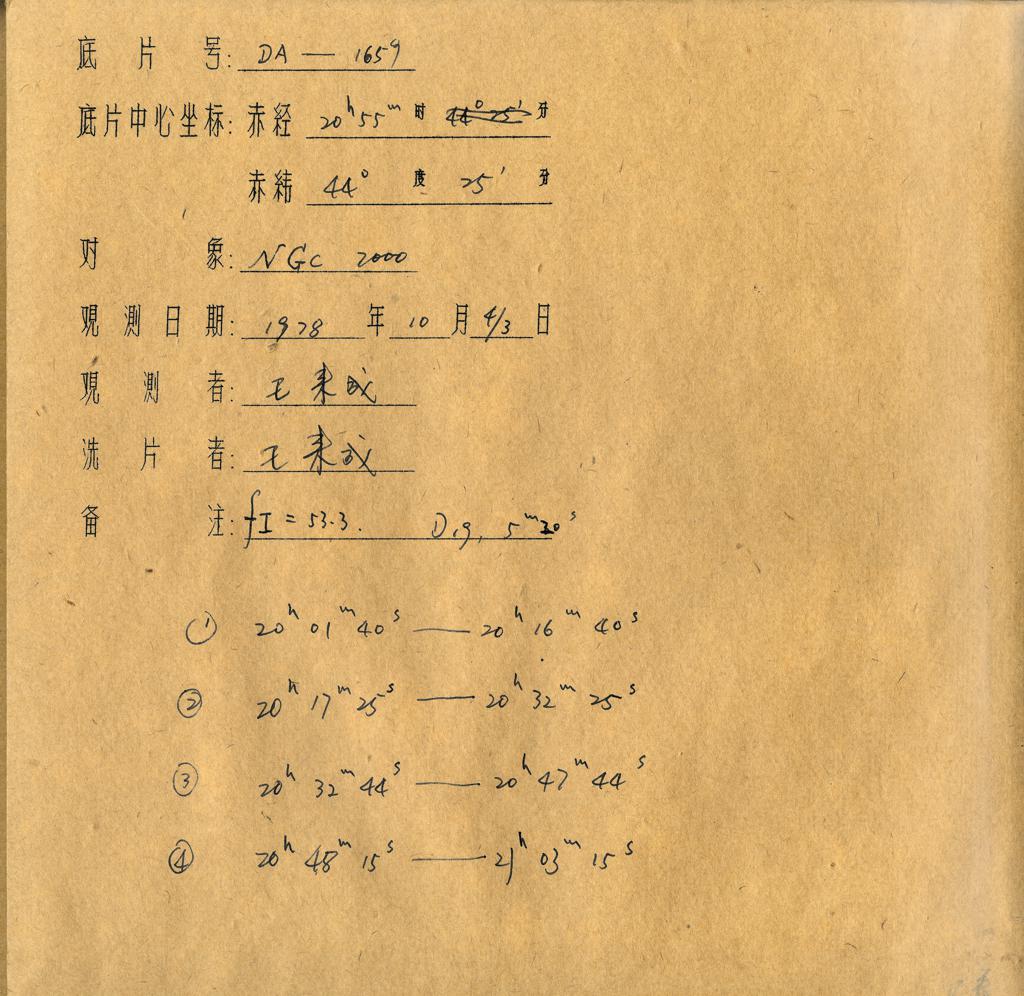 底片号: DA — 1659
底片中心坐标: 赤经 20ʰ55ᵐ 时 分
赤纬 44° 度 25′ 分
对象: NGC 7000
观测日期: 1978 年 10 月 4/3 日
观测者: 王来成
洗片者: 王来成
备注: fI = 53.3. D19, 5ᵐ30ˢ
① 20ʰ 01ᵐ 40ˢ — 20ʰ 16ᵐ 40ˢ
② 20ʰ 17ᵐ 25ˢ — 20ʰ 32ᵐ 25ˢ
③ 20ʰ 32ᵐ 44ˢ — 20ʰ 47ᵐ 44ˢ
④ 20ʰ 48ᵐ 15ˢ — 21ʰ 03ᵐ 15ˢ